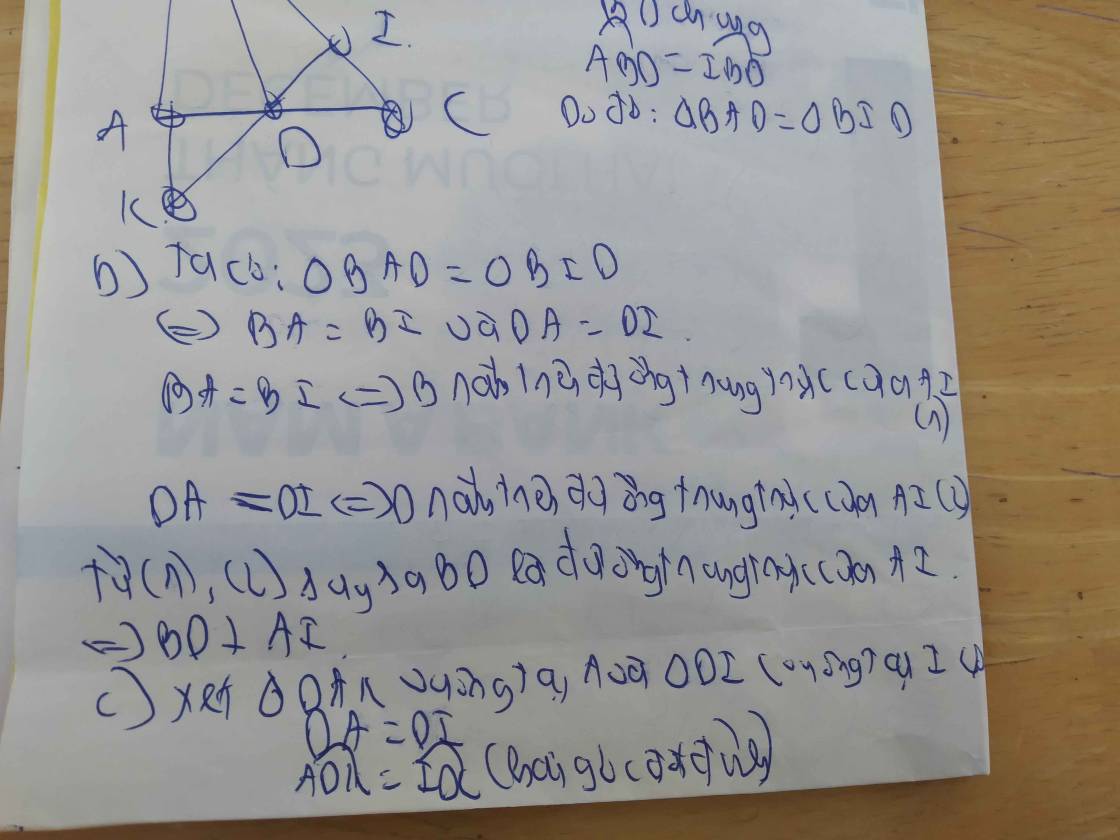 I.
BD chung
ABD = IBD
A
C
Do đó: ΔBAD = ΔBID
D
K
b) Ta có: ΔBAD = ΔBID
<=> BA = BI và DA = DI.
BA = BI <=> B nằm trên đường trung trực của AI
(1)
DA = DI <=> D nằm trên đường trung trực của AI (2)
Từ (1), (2) suy ra BD là đường trung trực của AI.
=> BD ⊥ AI.
c) Xét ΔDAK vuông tại A và ΔDIC vuông tại I có
DA = DI
ADK = IDC (hai góc đối đỉnh)
DECEMBER
THÁNG MƯỜI HAI
2025
NAM A BANK